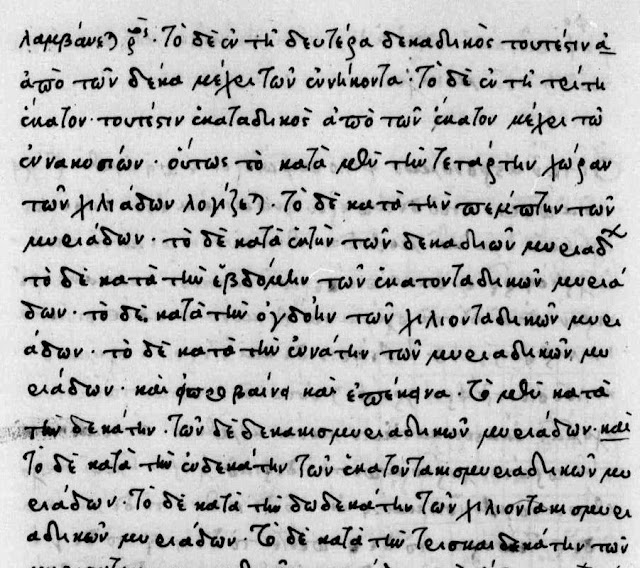 λαμβάνετ . Τὸ δὲ ἐν τῇ δευτέρα δεκαδικὸς τουτέστιν ἀ
ἀπὸ τῶν δέκα μέχρι τῶν ἐννήκοντα · Τὸ δὲ ἐν τῇ τρίτῃ
ἑκατον · τουτέστιν ἑκαταδικὸς ἀπὸ τῶν ἑκατον μέχρι τῶ
ἐννακοσιών · οὕτως τὸ κατὰ μὲν τὴν τετάρτην χώραν
τῶν χιλιάδων λογίζετ · τὸ δὲ κατὰ τὴν πέμπτην τῶν
μυριάδων · τὸ δὲ κατὰ ἕκτην τῶν δεκαδικῶν μυριαδ
τὸ δὲ κατὰ τὴν ἑβδόμην τῶν ἑκατονταδικῶν μυριά
δων · τὸ δὲ κατὰ τὴν ὀγδόην τῶν χιλιονταδικῶν μυρι
άδων · τὸ δὲ κατὰ τὴν ἐννάτην τῶν μυριαδικῶν μυ
ριάδων · καὶ καὶ ἐπέκεινα · τὸ μὲν κατὰ
τὴν δεκάτην · τῶν δὲ δεκακισμυριαδικῶν μυριάδων · καὶ
τὸ δὲ κατὰ τὴν ἑνδεκάτην τῶν ἑκατοντακισμυριαδικῶν μυ
ριάδων · τὸ δὲ κατὰ τὴν δωδεκάτην τῶν χιλιοντακισμυρι
αδικῶν μυριάδων · τὸ δὲ κατὰ τὴν τρισκαιδεκάτην τῶν